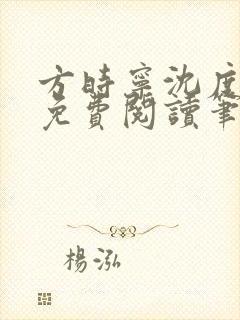 方時寧沈度
免費閱讀筆
楊泓